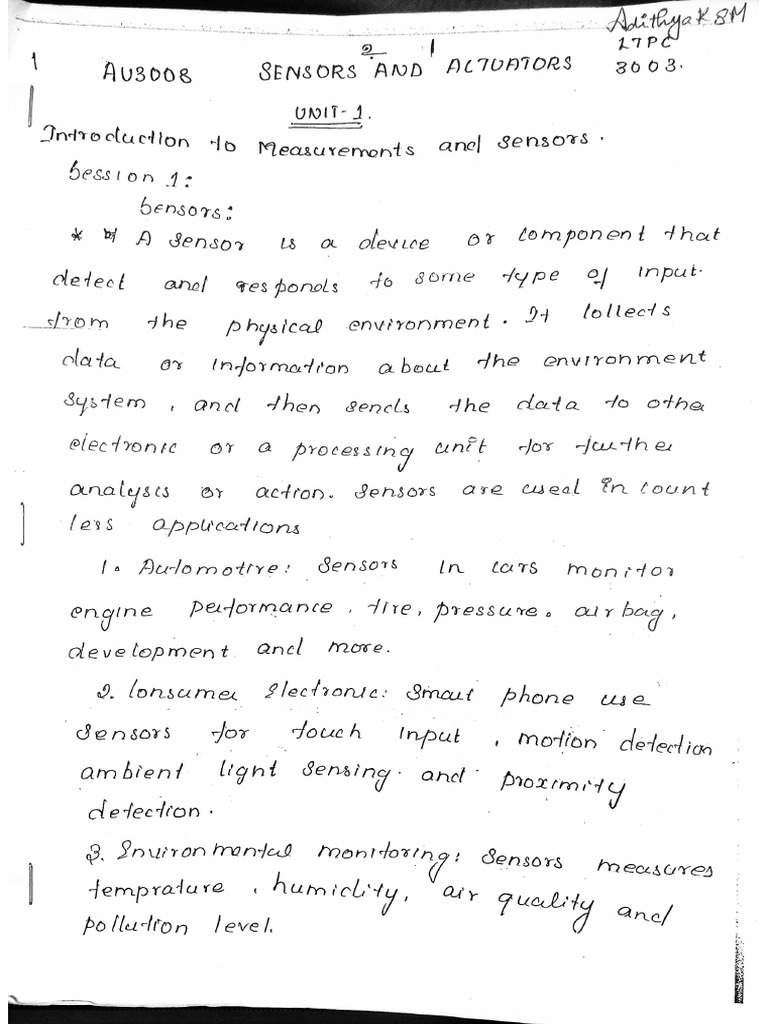 Adithya K S M
17PC
3003.
1 AU3008 SENSORS AND ACTUATORS
UNIT-1.
Introduction to Measurements and sensors.
Session 1:
Sensors:
* A sensor is a device or component that
detect and responds to some type of input.
from the physical environment. It collects
data or information about the environment
system, and then sends the data to othe
electronic or a processing unit for furthe
analysis or action. Sensors are used in count
less applications
1. Automotive: Sensors in cars monitor
engine performance, tire, pressure. air bag,
development and more.
2. Consumer Electronic: Smart phone use
Sensors for touch input, motion detection
ambient light sensing. and proximity
detection.
3. Environmental monitoring: Sensors measures
temprature, humidity, air quality and
pollution level.